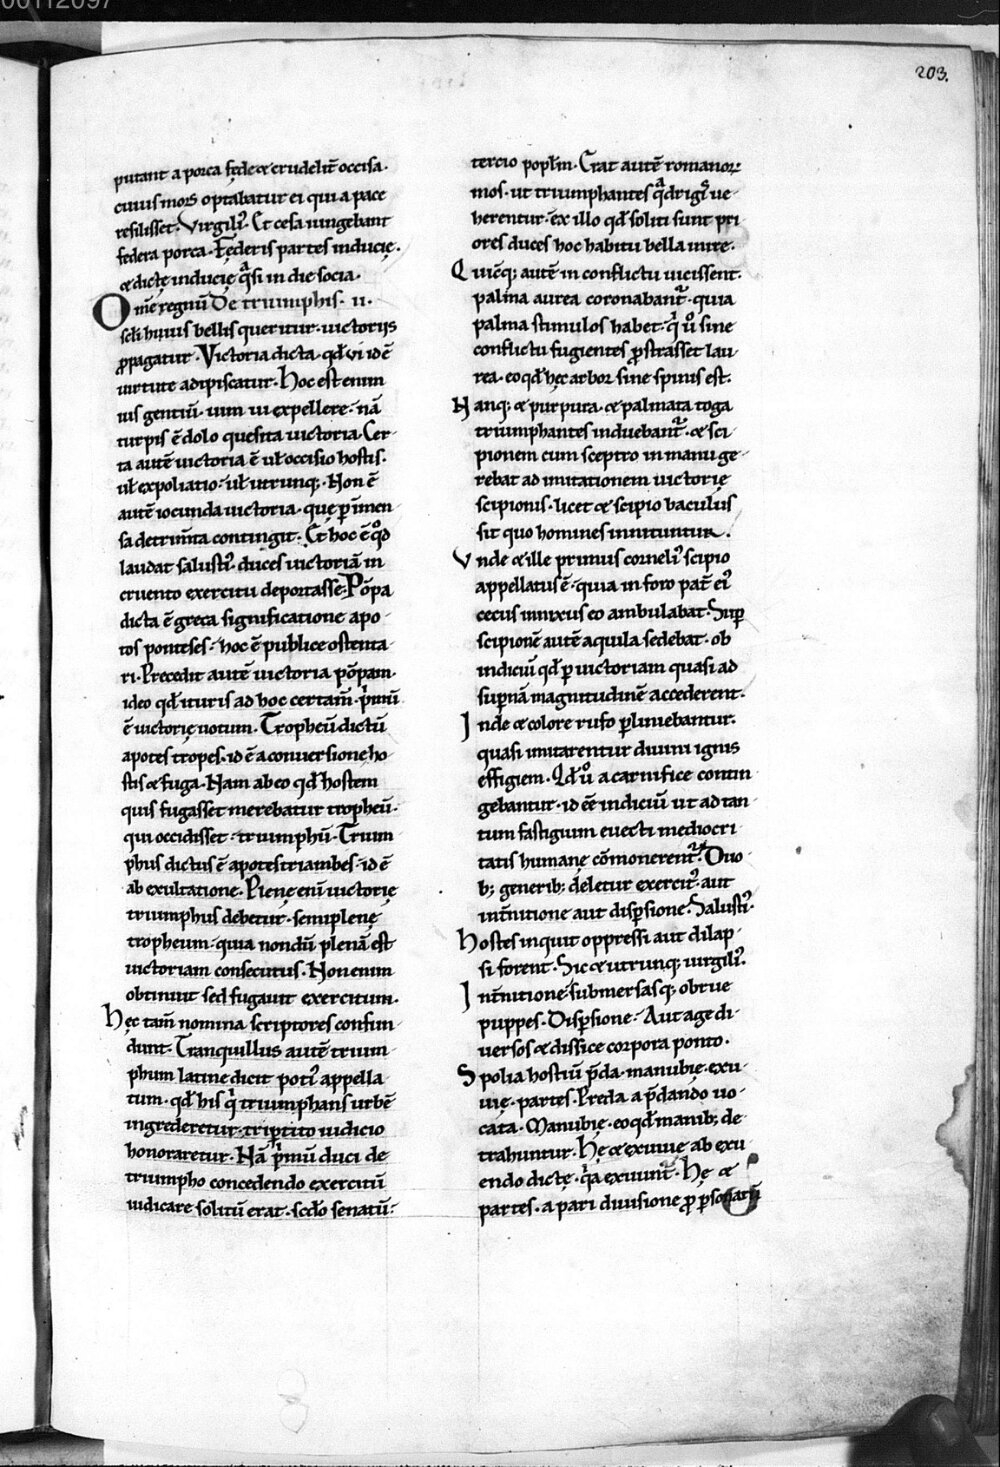 00112097
203.
putant a porca fęde ⁊ crudelit̄ occisa.
cuius mors optabatur ei qui a pace
resilisset. Virgili᷒. Et cęsa iungebant
fędera porca. Fęderis partes induciȩ.
⁊ dictę induciȩ qͣsi in die socia.
Om̄e regnū De triumphis. ii.
sc̄li huius bellis queritur. uictoriis
ꝓpagatur. Victoria dicta. qd̄ ui id ē
uirtute adipiscatur. Hoc est enim
ius gentiū. uim ui expellere. nā
turpis ē dolo quesita uictoria. Cer-
ta autē uictoria ē ul̄ occisio hostis.
ul̄ expoliatio. ul̄ utrunq;. Non ē
autē iocunda uictoria. quę ꝑ inmen-
sa detrim̄ta contingit. Et hoc ē qͦd
laudat salusti᷒. duces uictoriā in
cruento exercitu deportasse. Pōpa
dicta ē greca significatione apo
tos ponteses. hoc ē publice ostenta-
ri. Precedit autē uictoria pōpam.
ideo qd̄ ituris ad hoc certam̄. pͥmū
ē uictorię uotum. Tropheū dictū
apo tes tropes. id ē a conuersione ho-
stis ⁊ fuga. Nam ab eo qd̄ hostem
quis fugasset merebatur tropheū.
qui occidisset. triumphū. Trium-
phus dictus ē apo tes triambes. id ē
ab exultatione. Plenę eni uictorię
triumphus debetur. semiplenę
tropheum. quia nondū plenā est
uictoriam consecutus. Non enim
obtinuit sed fugauit exercitum.
Hęc tam̄ nomina scriptores confun-
dunt. Tranquillus autē trium-
phum latine dicit poti᷒ appella-
tum. qd̄ his qͥ triumphans urbē
ingrederetur. tripͬtito iudicio
honoraretur. Nā pͥmū duci de
triumpho concedendo exercitū
iudicare solitū erat. scdo senatū.
tercio popl̄m. Erat autē romanoꝝ
mos. ut triumphantes qͣdrigis ue-
herentur. ex illo qd̄ soliti sunt pri-
ores duces hoc habitu bella inire.
Quicq; autē in conflictu uicissent.
palma aurea coronabant᷑. quia
palma stimulos habet. qͥ uͦ sine
conflictu fugientes ꝓstrasset lau-
rea. eo qd̄ hęc arbor sine spinis est.
Nanq; ⁊ purpura. ⁊ palmata toga
triumphantes induebant᷑. ⁊ sci-
pionem cum sceptro in manu ge-
rebat ad imitationem uictorię
scipionis. licet ⁊ scipio baculus
sit quo homines innituntur.
Vnde ⁊ ille primus corneli᷒ scipio
appellatus ē. quia in foro pat̄ ei᷒
cecus innixus eo ambulabat. Suꝑ
scipionē autē aquila sedebat. ob
indiciū qd̄ ꝑ uictoriam quasi ad
supͬnā magnitudinē accederent.
Inde ⁊ colore rufo ꝑliniebantur.
quasi imitarentur diuini ignis
effigiem. Qd̄ uͦ a carnifice contin-
gebantur. id eē indiciū ut ad tan-
tum fastigium euecti mediocri-
tatis humanę cōmonerent᷑. Duo
b; generib; deletur exercit᷒. aut
int̄nitione aut disꝑsione. Salusti᷒.
Hostes inquit oppressi aut dilap-
si forent. Sic ⁊ utrunq; uirgili᷒.
Int̄nitione. submersasq; obrue
puppes. Disꝑsione. Aut age di-
uersos ⁊ dissice corpora ponto.
Spolia hostiū. p̄da. manubię. exu-
uię. partes. Preda a p̄dando uo-
cata. Manubię. eo qd̄ manib; de-
trahuntur. Hę ⁊ exuuię ab exu-
endo dictę. qͣa exuunt᷑. Hę ⁊
partes. a pari diuisione ꝓ ꝑsonarū